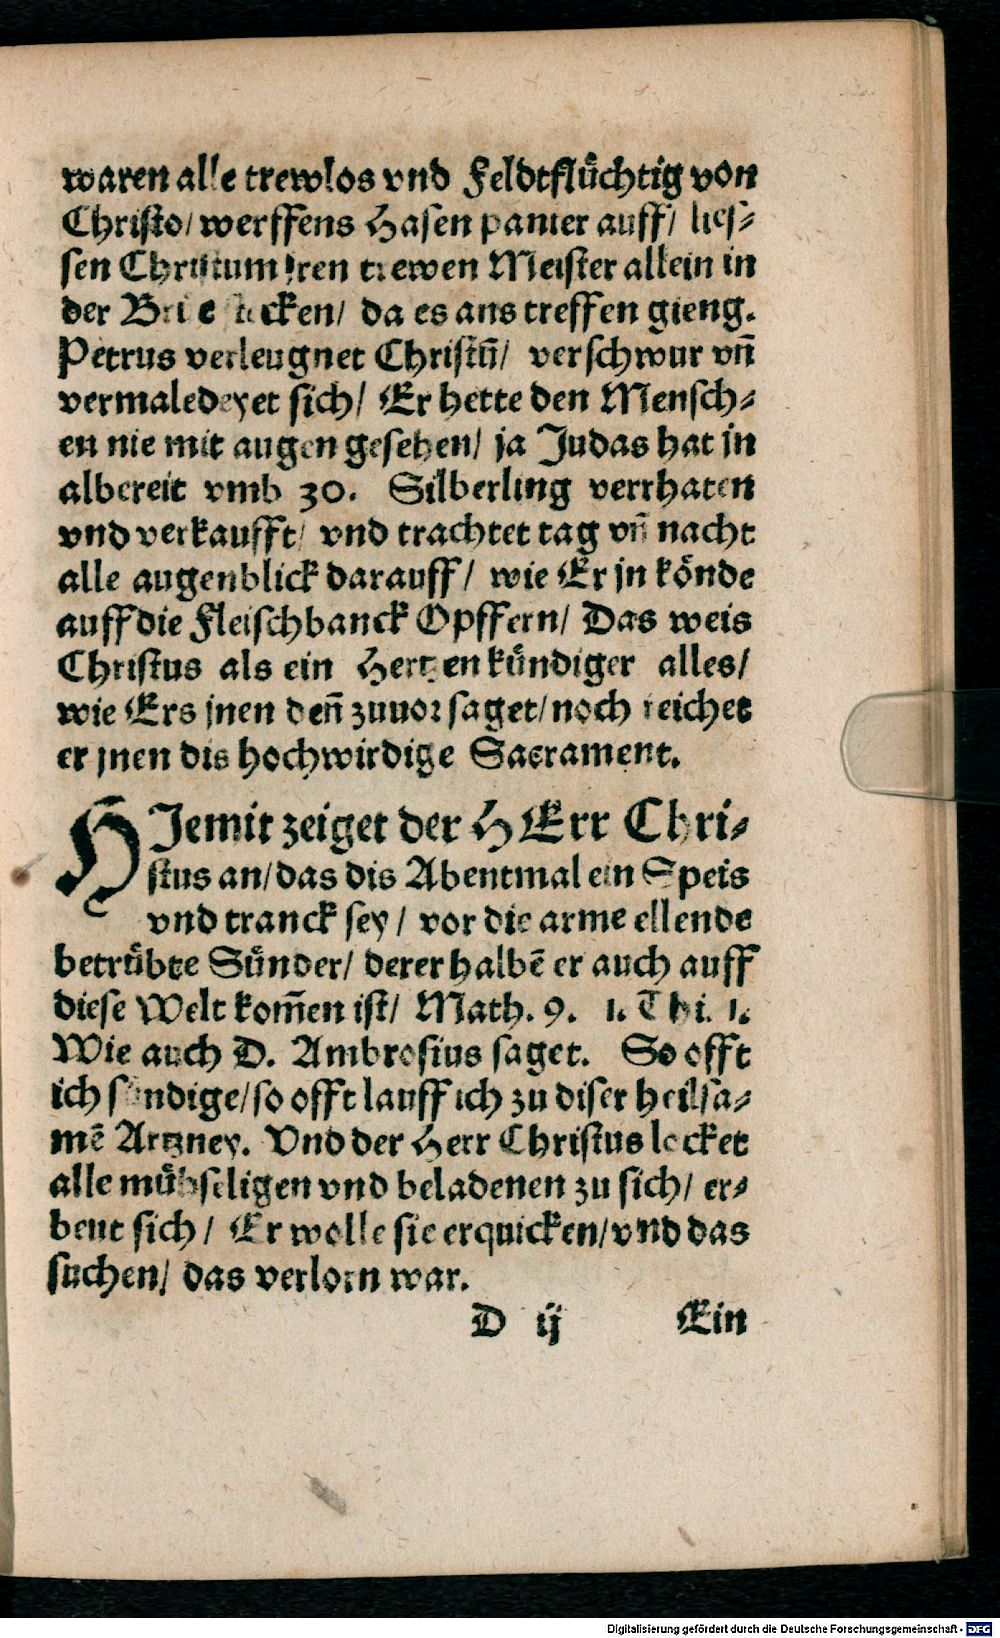 waren alle trewlos vnd Feldtflüchtig von
Christo/ werffens Hasen panier auff/ lies-
sen Christum jren trewen Meister allein in
der Brie stecken/ da es ans treffen gieng.
Petrus verleugnet Christū/ verschwur vn̄
vermaledeyet sich/ Er hette den Mensch-
en nie mit augen gesehen/ ja Judas hat jn
albereit vmb 30. Silberling verrhaten
vnd verkaufft/ vnd trachtet tag vn̄ nacht
alle augenblick darauff/ wie Er jn könde
auff die Fleischbanck Opffern/ Das weis
Christus als ein Hertzen kündiger alles/
wie Ers jnen den̄ zuuor saget/ noch reichet
er jnen dis hochwirdige Sacrament.
HJemit zeiget der HErr Chri-
stus an/ das dis Abentmal ein Speis
vnd tranck sey/ vor die arme ellende
betrübte Sünder/ derer halbē er auch auff
diese Welt kom̄en ist/ Math. 9. 1. Thi. 1.
Wie auch D. Ambrosius saget. So offt
ich sündige/ so offt lauff ich zu diser heilsa-
mē Artzney. Vnd der Herr Christus locket
alle mühseligen vnd beladenen zu sich/ er-
beut sich/ Er wolle sie erquicken/ vnd das
suchen/ das verlorn war.
D ij Ein
Digitalisierung gefördert durch die Deutsche Forschungsgemeinschaft - DFG